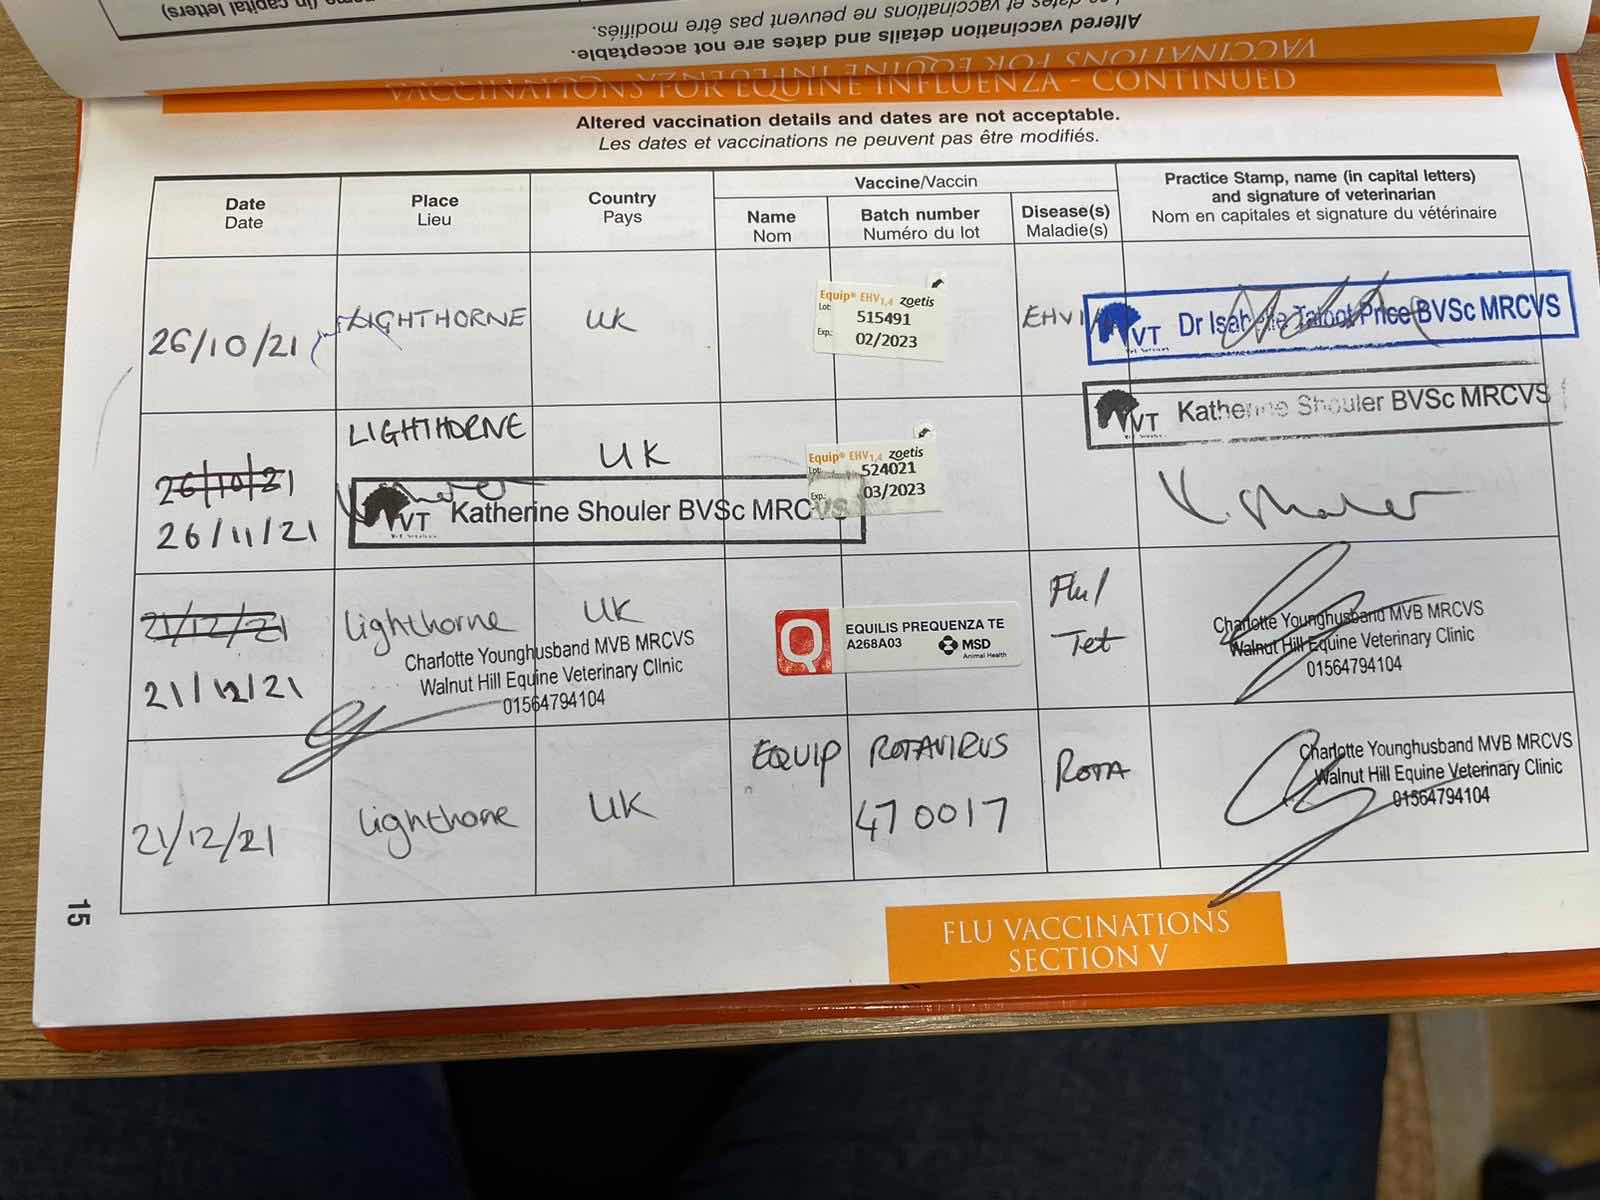 (in capital letters)
Les dates et vaccinations ne peuvent pas être modifiés.
Altered vaccination details and dates are not acceptable.
VACCINATIONS FOR EQUINE INFLUENZA
VACCINATIONS FOR EQUINE INFLUENZA - CONTINUED
Altered vaccination details and dates are not acceptable.
Les dates et vaccinations ne peuvent pas être modifiés.
Date
Date
Place
Lieu
Country
Pays
Vaccine/Vaccin
Name
Nom
Batch number
Numéro du lot
Disease(s)
Maladie(s)
Practice Stamp, name (in capital letters)
and signature of veterinarian
Nom en capitales et signature du vétérinaire
26/10/21
LIGHTHORNE
UK
Equip® EHV1,4 zoetis
Lot: 515491
Exp.: 02/2023
EHV1
VT Dr Isabelle Talbot Price BVSc MRCVS
26/10/21
26/11/21
LIGHTHORNE
VT Katherine Shouler BVSc MRCVS
UK
Equip® EHV1,4 zoetis
Lot: 524021
Exp.: 03/2023
VT Katherine Shouler BVSc MRCVS
K. Shouler
21/12/21
21/12/21
Lighthorne
UK
Charlotte Younghusband MVB MRCVS
Walnut Hill Equine Veterinary Clinic
01564794104
Q EQUILIS PREQUENZA TE
A268A03
MSD
Animal Health
Flu/
Tet
Charlotte Younghusband MVB MRCVS
Walnut Hill Equine Veterinary Clinic
01564794104
21/12/21
Lighthorne
UK
EQUIP ROTAVIRUS
470017
ROTA
Charlotte Younghusband MVB MRCVS
Walnut Hill Equine Veterinary Clinic
01564794104
15
FLU VACCINATIONS
SECTION V